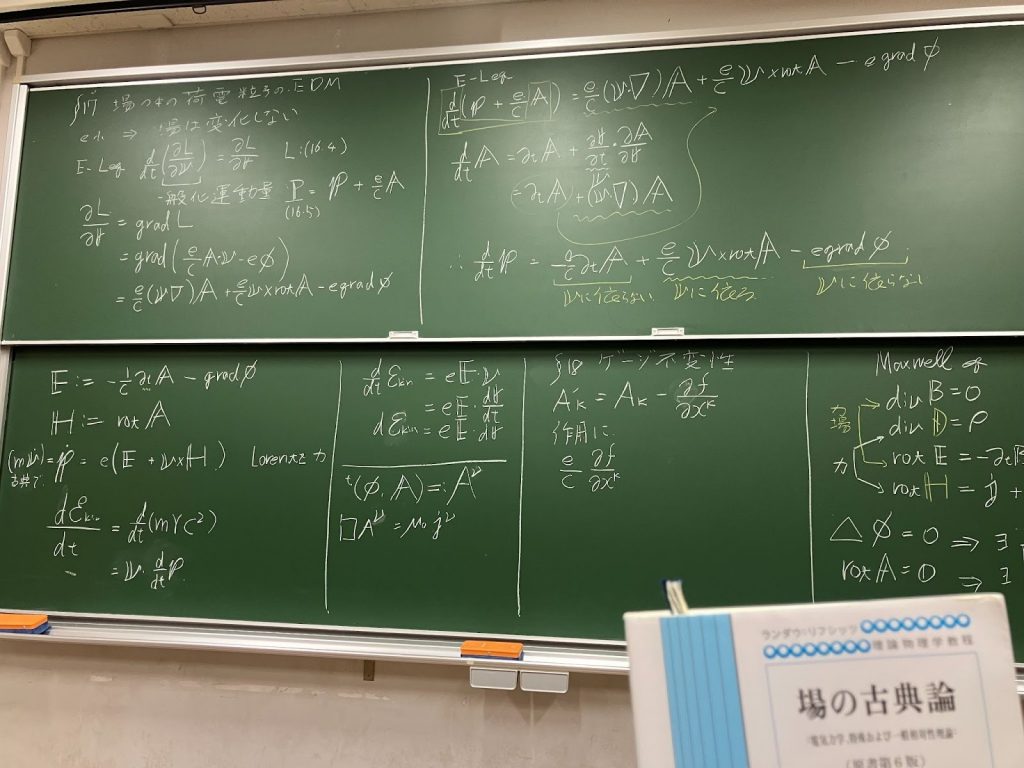 §17 場の中の荷電粒子の EOM
e小 ⇒ 場は変化しない
E-L eq. d/dt(∂L/∂𝕧) = ∂L/∂𝕣 L:(16.4)
一般化運動量 P = 𝕡 + e/c 𝔸
(16.5)
∂L/∂𝕣 = grad L
= grad(e/c 𝔸·𝕧 - eφ)
= e/c(𝕧∇)𝔸 + e/c 𝕧×rot𝔸 - e gradφ
E-L eq
d/dt(𝕡 + e/c 𝔸) = e/c(𝕧∇)𝔸 + e/c 𝕧×rot𝔸 - e gradφ
d/dt 𝔸 = ∂t𝔸 + ∂𝕣/∂t·∂𝔸/∂𝕣
= ∂t𝔸 + (𝕧∇)𝔸
∴ d/dt 𝕡 = -e/c ∂t𝔸 + e/c 𝕧×rot𝔸 - e gradφ
𝕧に依らない 𝕧に依る 𝕧に依らない
𝔼 := -1/c ∂t𝔸 - gradφ
ℍ := rot 𝔸
(m𝕧̇) = 𝕡̇ = e(𝔼 + 𝕧×ℍ) Lorentz力
古典で
dℰkin/dt = d/dt(mγc²)
= 𝕧·d/dt 𝕡
d/dt ℰkin = e𝔼·𝕧
= e𝔼·d𝕣/dt
dℰkin = e𝔼·d𝕣
ᵗ(φ, 𝔸) =: A^ν
□A^ν = μ₀ j^ν
§18 ゲージ不変性
A'k = Ak - ∂f/∂x^k
作用に
e/c ∂f/∂x^k
Maxwell eq
場
力
div 𝔹 = 0
div 𝔻 = ρ
rot 𝔼 = -∂t𝔹
rot ℍ = 𝕛 +
△φ = 0 ⇒ ∃
rot 𝔸 = 0 ⇒ ∃
ランダウ=リフシッツ
理論物理学教程
場の古典論
電気力学,特殊および一般相対性理論
(原書第6版)